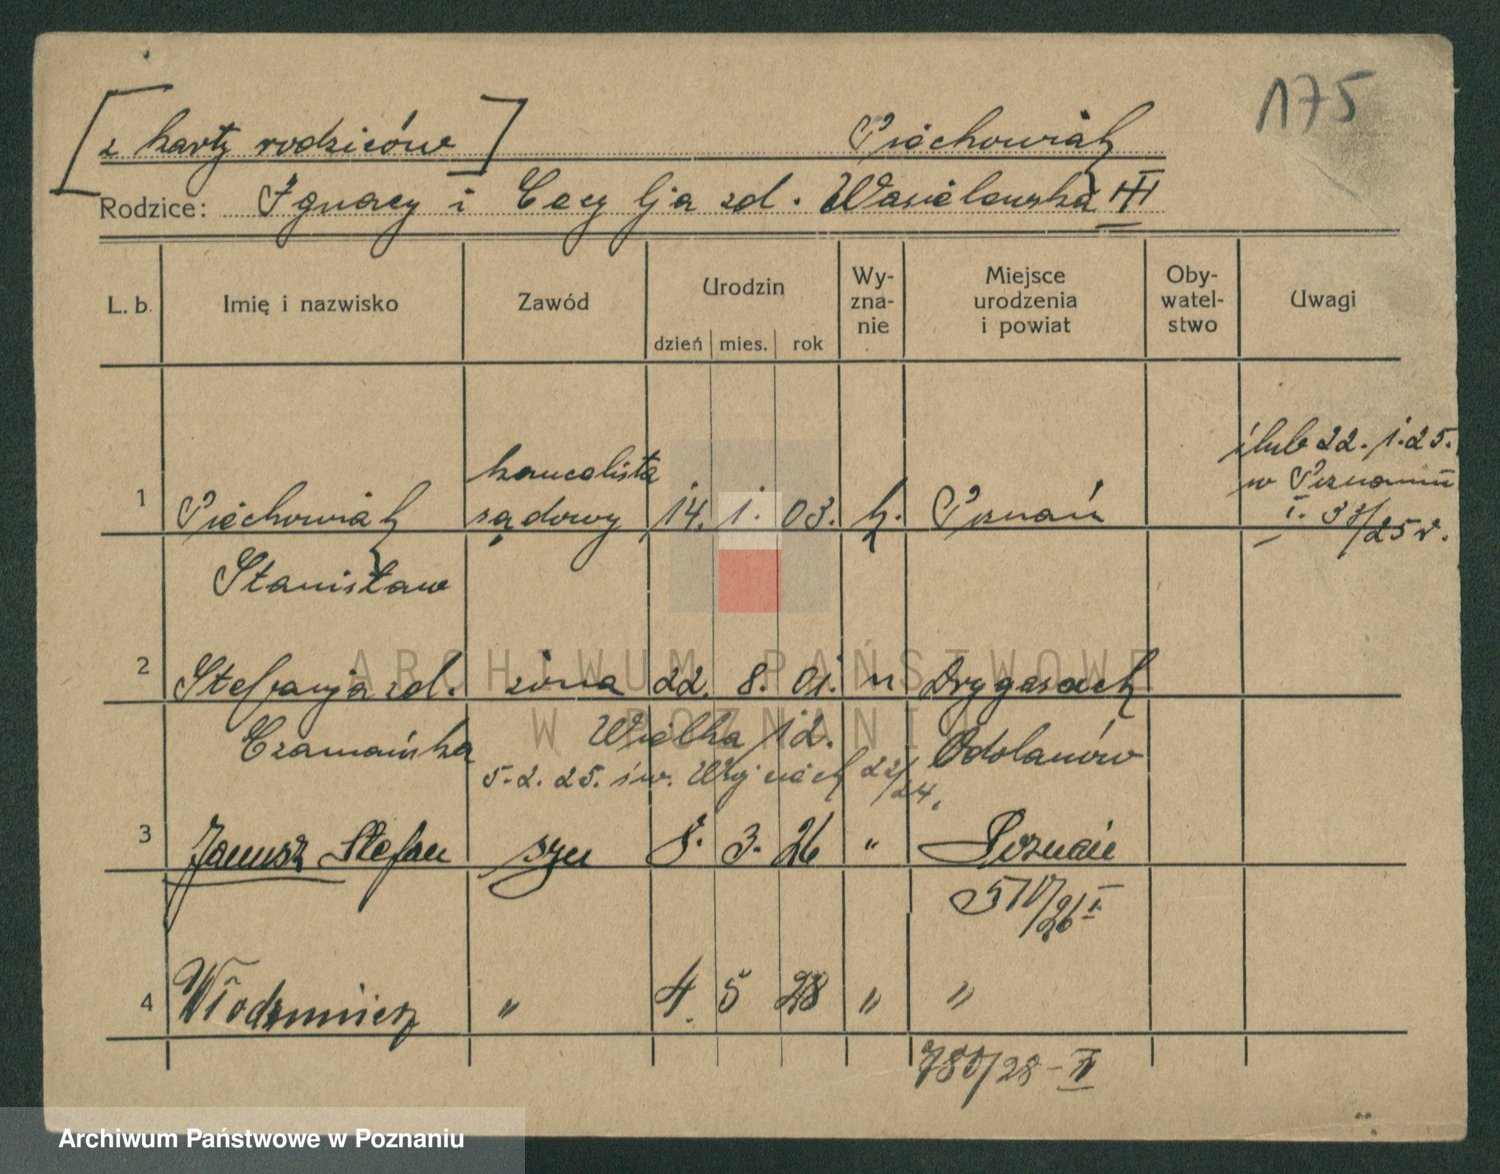 175
[z karty rodziców] Piechowiak
Rodzice: Ignacy i Cecylja zd. Wasielewska III
L. b. Imię i nazwisko Zawód Urodzin Wy-zna-nie Miejsce urodzenia i powiat Oby-watel-stwo Uwagi
dzień mies. rok
ślub 22. 1. 25.
w Poznaniu
kancelista
1 Piechowiak sądowy 14. 1. 03. k. Poznań I. 38/25 r.
Stanisław
2 Stefanja zd. żona 22. 8. 01. " Drygasach
Czarnańska Wielka 12. Odolanów
5. 2. 25. św. Wojciech 22/24.
3 Janusz Stefan syn 8. 3. 26 " Poznań
517/26 I
4 Włodzimierz " 4. 5 28 " "
780/28 - II
ARCHIWUM PAŃSTWOWE
W POZNANIU
Archiwum Państwowe w Poznaniu